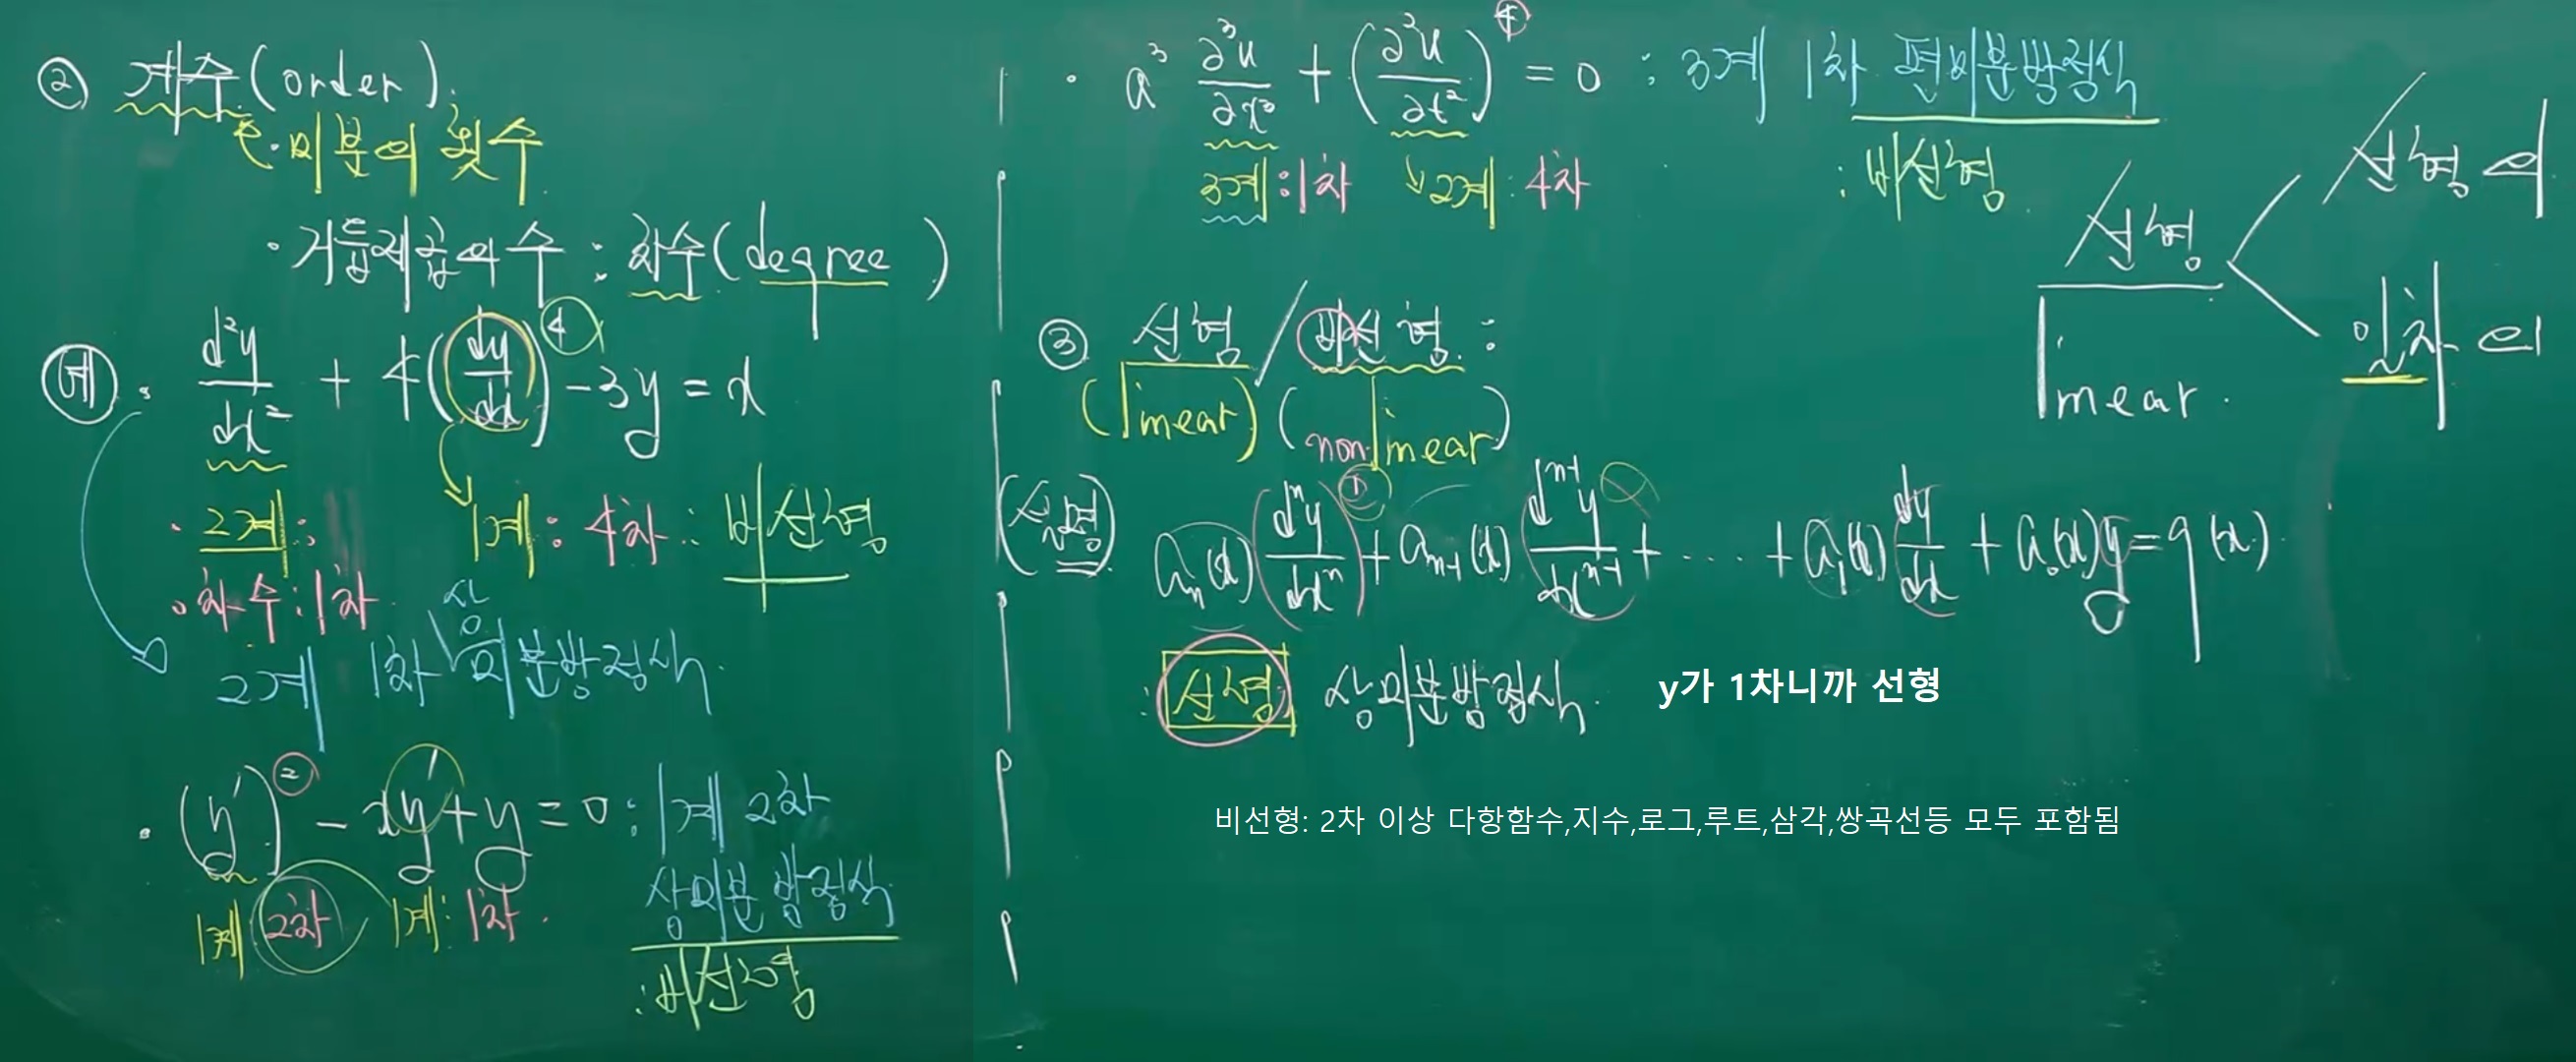 ② 계수(order).
미분의 횟수
· 거듭제곱의 수 : 차수(degree )
예. d²y/dx² + 4(dy/dx)⁴ - 3y = x
· 2계: 1계: 4차: 비선형
· 차수: 1차
2계 1차 상미분방정식.
· (y')² - xy' + y = 0 : 1계 2차
상미분방정식
1계 2차 1계: 1차.
: 비선형
· a³ ∂³u/∂x³ + (∂²u/∂t²)⁴ = 0 : 3계 1차 편미분방정식
3계: 1차 2계: 4차
: 비선형
선형 선형의
linear. 일차의
③ 선형 / 비선형 :
(linear) (non linear)
(선형) aₙ(x)(dⁿy/dxⁿ)① + aₙ₋₁(x) dⁿ⁻¹y/dxⁿ⁻¹ + ···· + a₁(x) dy/dx + a₀(x)y = g(x).
: 선형 상미분방정식.
y가 1차니까 선형
비선형: 2차 이상 다항함수,지수,로그,루트,삼각,쌍곡선등 모두 포함됨